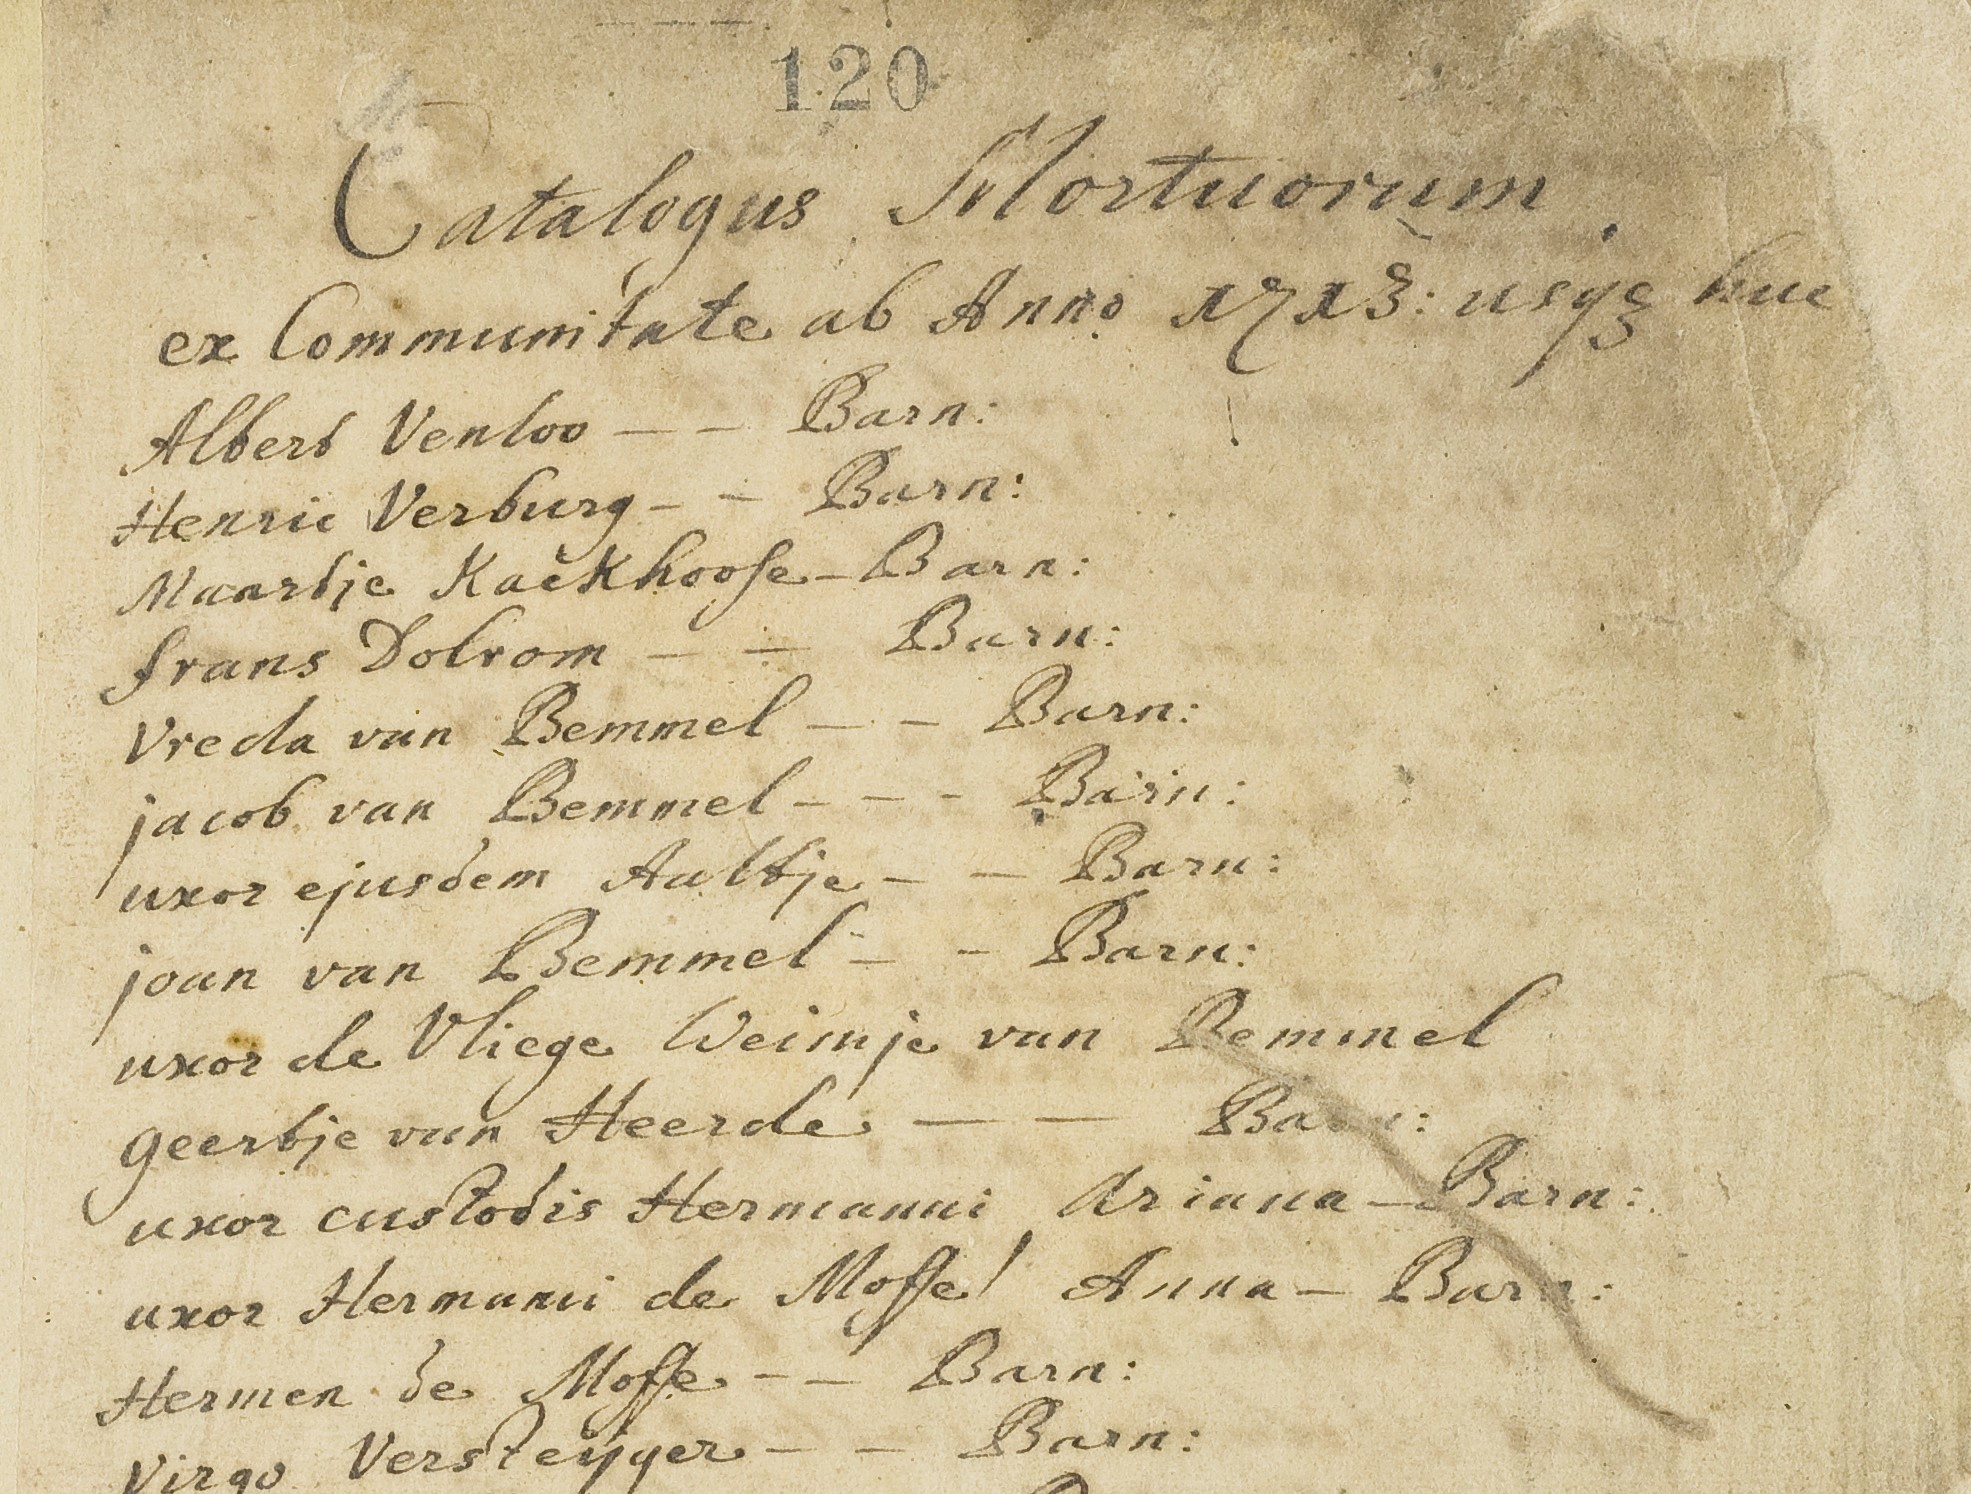 120
Catalogus Mortuorum
ex Communitate ab Anno 1713: usqꝫ huc
Albert Venloo — — Barn:
Henric Verburg — — Barn:
Maartje Kackhoofe — Barn:
frans Dolrom — — Barn:
Vreda van Bemmel — — Barn:
jacob van Bemmel — — — Barn:
uxor ejusdem Aaltje — — Barn:
joan van Bemmel — — Barn:
uxor de Vliege Weimje van Bemmel
geertje van Heerde — — Barn:
uxor custodis Hermanni Ariana — Barn:
uxor Hermanni de Moffe Anna — Barn:
Hermen de Moffe — — Barn:
Virgo Versteyger — — Barn: